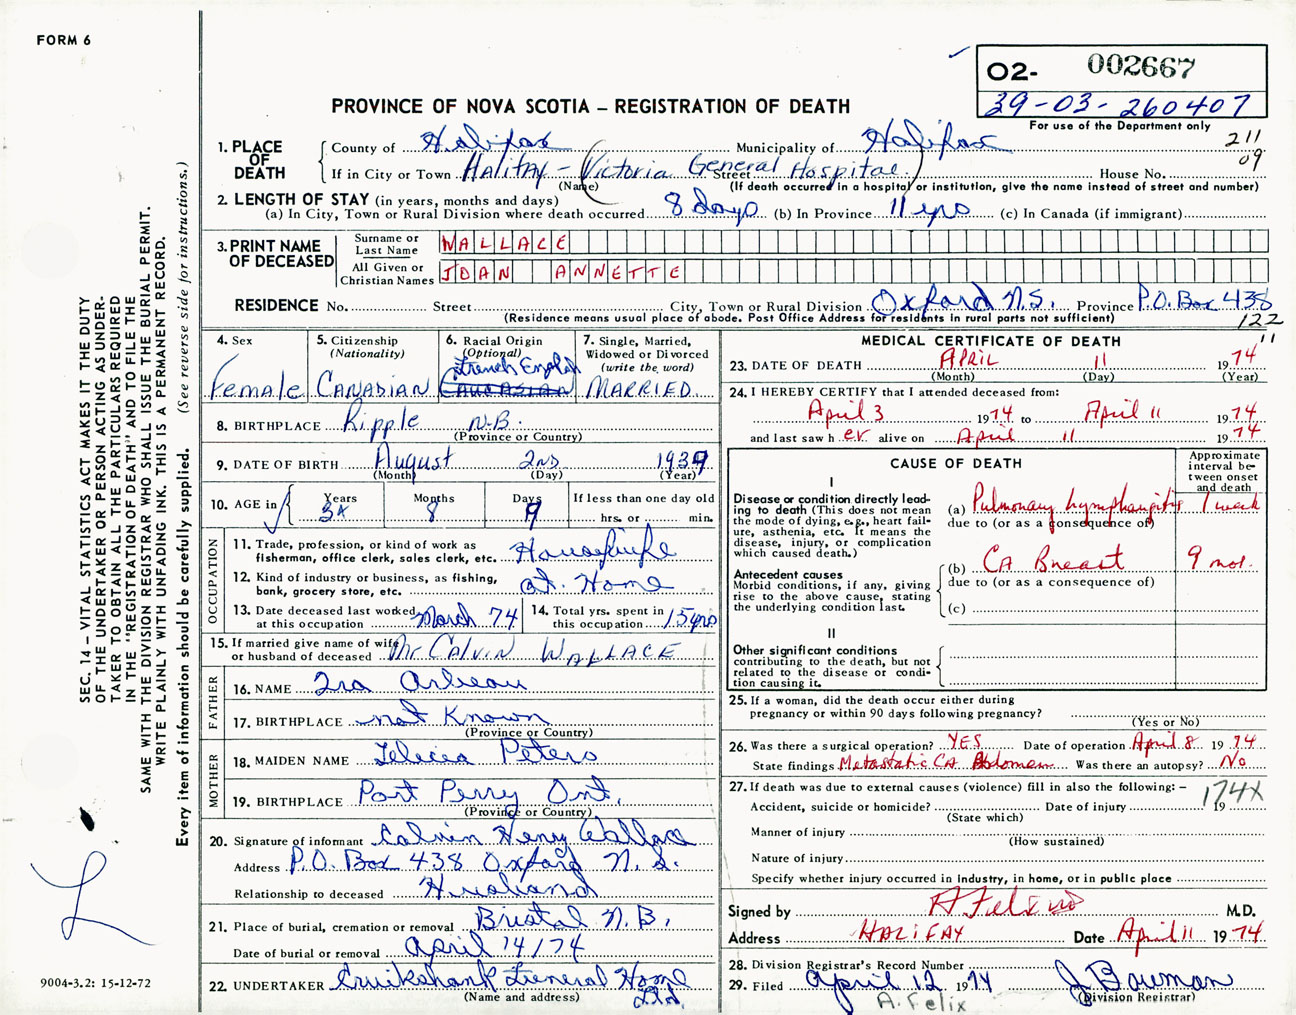 FORM 6
O2- 002667
39-03-260407
For use of the Department only
211
09
PROVINCE OF NOVA SCOTIA – REGISTRATION OF DEATH
SEC. 14 – VITAL STATISTICS ACT MAKES IT THE DUTY
OF THE UNDERTAKER OR PERSON ACTING AS UNDER-
TAKER TO OBTAIN ALL THE PARTICULARS REQUIRED
IN THE "REGISTRATION OF DEATH" AND TO FILE THE
SAME WITH THE DIVISION REGISTRAR WHO SHALL ISSUE THE BURIAL PERMIT.
WRITE PLAINLY WITH UNFADING INK. THIS IS A PERMANENT RECORD.
Every item of information should be carefully supplied. (See reverse side for instructions.)
1. PLACE OF DEATH
County of Halifax Municipality of Halifax
If in City or Town Halifax – (Victoria General Hospital) Street House No.
(Name) (If death occurred in a hospital or institution, give the name instead of street and number)
2. LENGTH OF STAY (in years, months and days)
(a) In City, Town or Rural Division where death occurred 8 days (b) In Province 11 yrs (c) In Canada (if immigrant)
3. PRINT NAME OF DECEASED
Surname or Last Name WALLACE
All Given or Christian Names JOAN ANNETTE
RESIDENCE No. Street City, Town or Rural Division Oxford N.S. Province P.O. Box 438
(Residence means usual place of abode. Post Office Address for residents in rural parts not sufficient)
122
11
4. Sex Female
5. Citizenship (Nationality) CANADIAN
6. Racial Origin (Optional) French English CAUCASIAN
7. Single, Married, Widowed or Divorced (write the word) MARRIED
8. BIRTHPLACE Ripple N-B.
(Province or Country)
9. DATE OF BIRTH August 2ND 1939
(Month) (Day) (Year)
10. AGE in Years 34 Months 8 Days 9 If less than one day old hrs. or min.
OCCUPATION
11. Trade, profession, or kind of work as fisherman, office clerk, sales clerk, etc. Housewife
12. Kind of industry or business, as fishing, bank, grocery store, etc. at. Home
13. Date deceased last worked at this occupation March 74
14. Total yrs. spent in this occupation 15 yrs
15. If married give name of wife or husband of deceased Mr CALVIN WALLACE
FATHER
16. NAME Ira Arbeau
17. BIRTHPLACE not Known
(Province or Country)
MOTHER
18. MAIDEN NAME Felicia Peters
19. BIRTHPLACE Port Perry Ont.
(Province or Country)
20. Signature of informant Calvin Henry Wallace
Address P.O. Box 438 Oxford N.S.
Relationship to deceased Husband
21. Place of burial, cremation or removal Bristol N.B.
Date of burial or removal April 14/74
22. UNDERTAKER Cruikshank Funeral Home Ltd.
(Name and address)
MEDICAL CERTIFICATE OF DEATH
23. DATE OF DEATH APRIL 11 1974
(Month) (Day) (Year)
24. I HEREBY CERTIFY that I attended deceased from:
April 3 1974 to April 11 1974
and last saw her alive on April 11 1974
CAUSE OF DEATH
Approximate interval between onset and death
I
Disease or condition directly leading to death (This does not mean the mode of dying, e.g., heart failure, asthenia, etc. It means the disease, injury, or complication which caused death.)
(a) Pulmonary Lymphangitis 1 week
due to (or as a consequence of)
Antecedent causes
Morbid conditions, if any, giving rise to the above cause, stating the underlying condition last.
(b) CA Breast 9 mos.
due to (or as a consequence of)
(c)
II
Other significant conditions
contributing to the death, but not related to the disease or condition causing it.
25. If a woman, did the death occur either during pregnancy or within 90 days following pregnancy?
(Yes or No)
26. Was there a surgical operation? YES Date of operation April 8 1974
State findings Metastatic CA Abdomen Was there an autopsy? No
27. If death was due to external causes (violence) fill in also the following: –
174X
Accident, suicide or homicide? Date of injury 19
(State which)
Manner of injury
(How sustained)
Nature of injury
Specify whether injury occurred in industry, in home, or in public place
Signed by A Felix MD M.D.
Address HALIFAX Date April 11 1974
28. Division Registrar's Record Number
29. Filed April 12 1974 J Bowman
(Division Registrar)
A. Felix
9004-3.2: 15-12-72